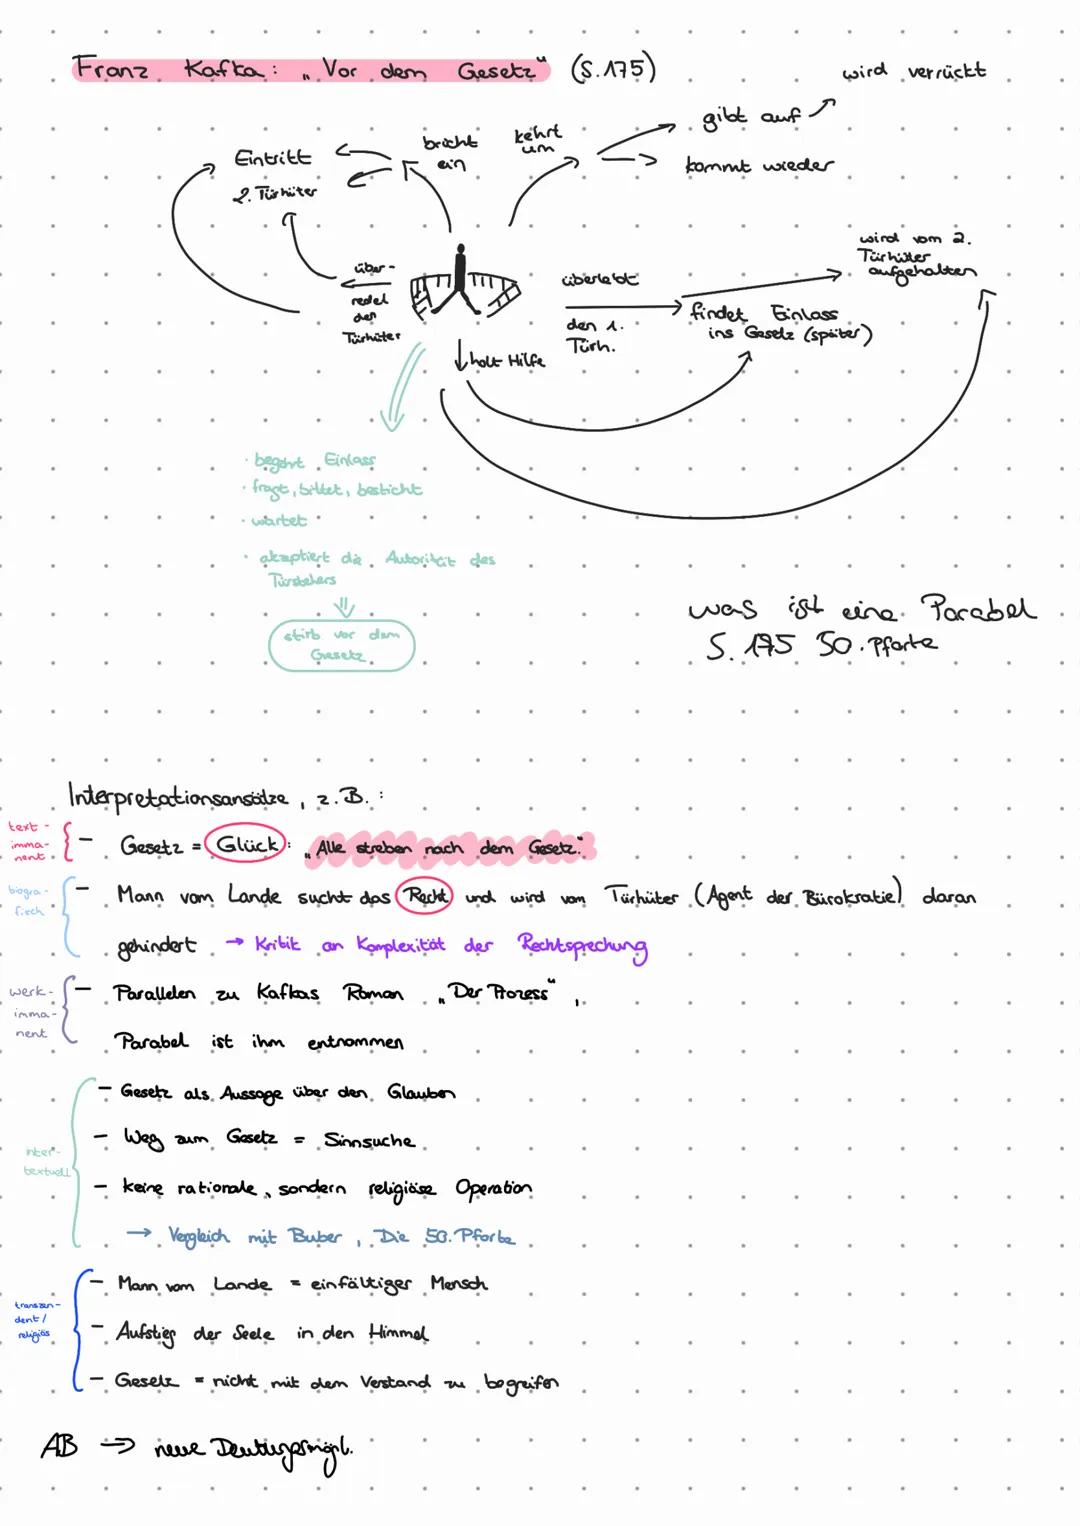 Franz Kafka: „Vor dem Gesetz" (S.175)
wird verrückt
gibt auf
kommt wieder
kehrt
um
bricht
ein
Eintritt
2. Türhüter
über-
redet
den
Türhüter
überlebt
den 1.
Türh.
findet Einlass
ins Gesetz (später)
wird vom 2.
Türhüter
aufgehalten
holt Hilfe
· begehrt Einlass
· fragt, bittet, besticht
· wartet
· akzeptiert die Autorität des
Türstehers
stirb vor dem
Gesetz
was ist eine Parabel
S. 175 50. Pforte
Interpretationsansätze, z.B.:
text-
imma-
nent
- Gesetz = Glück: „Alle streben nach dem Gesetz."
biogra-
fisch
- Mann vom Lande sucht das Recht und wird vom Türhüter (Agent der Bürokratie) daran
gehindert → Kritik an Komplexität der Rechtsprechung
werk-
imma-
nent
- Parallelen zu Kafkas Roman „Der Prozess",
Parabel ist ihm entnommen
inter-
textuell
- Gesetz als Aussage über den Glauben
- Weg zum Gesetz = Sinnsuche
- keine rationale, sondern religiöse Operation
→ Vergleich mit Buber, Die 50. Pforte
transzen-
dent/
religiös
- Mann vom Lande = einfältiger Mensch
- Aufstieg der Seele in den Himmel
- Gesetz = nicht mit dem Verstand zu begreifen
AB → neue Deutungsmögl.